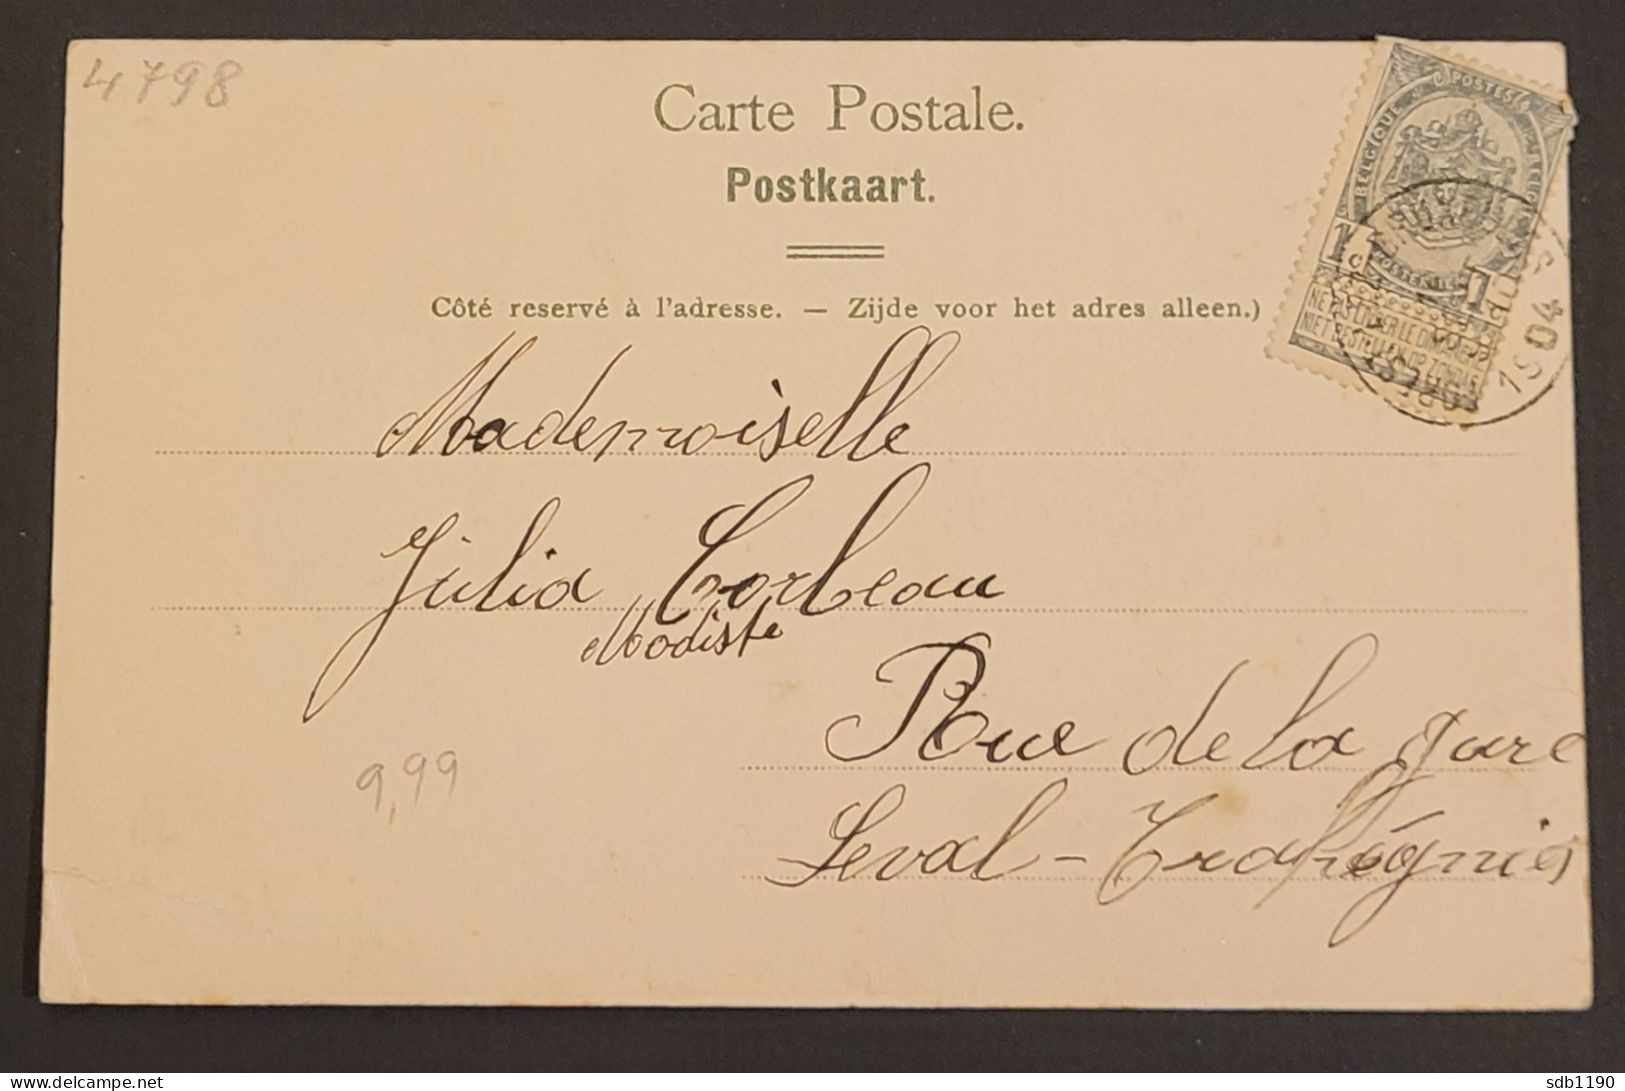 4798
Carte Postale.
Postkaart.
Côté reservé à l'adresse. — Zijde voor het adres alleen.)
POSTES
BELGIQUE
BELGIË
1c
1c
NE PAS LIVRER LE DIMANCHE
NIET BESTELLEN OP ZONDAG
1904
Mademoiselle
Julia Corbeau
Modiste
Rue de la gare
Leval-Trahégnies
9,99
sdb1190